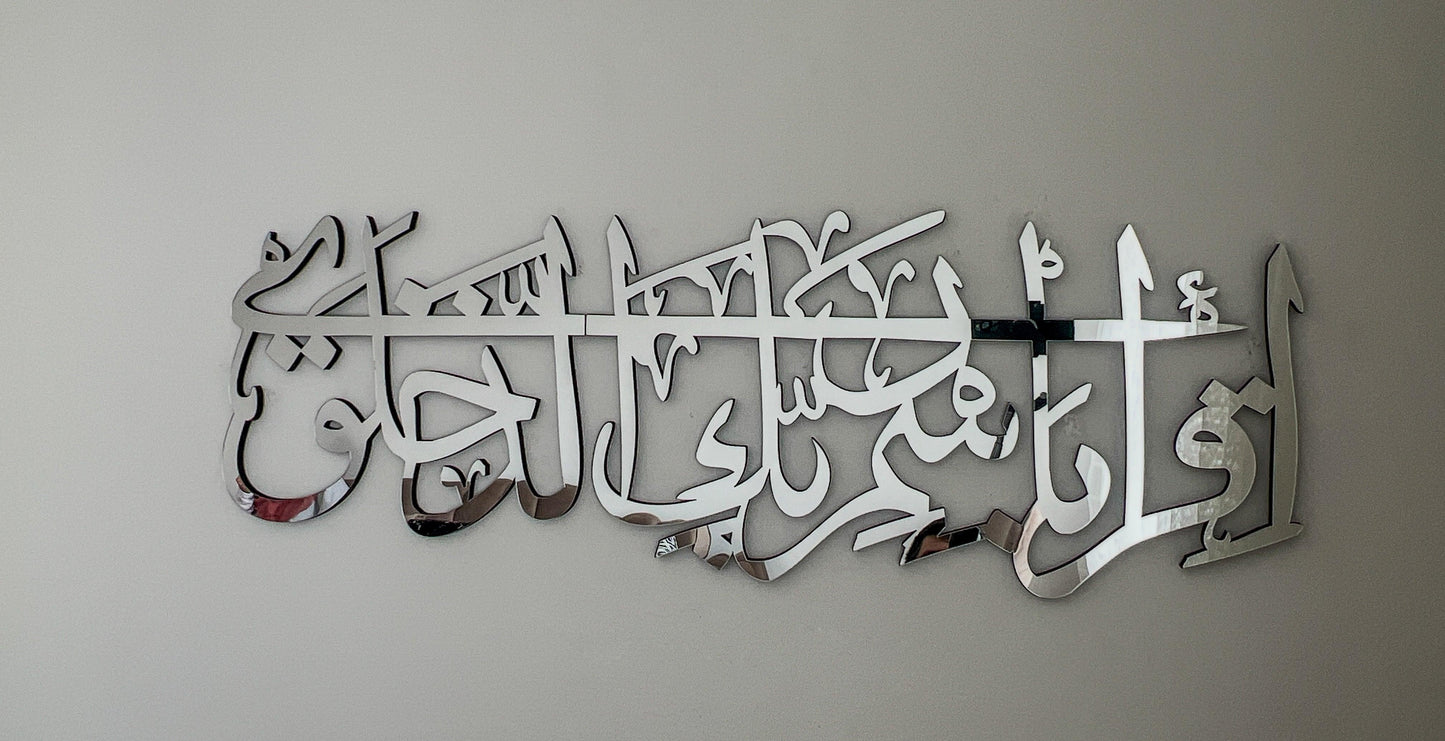 اقرأ باسم ربك الذي خلق